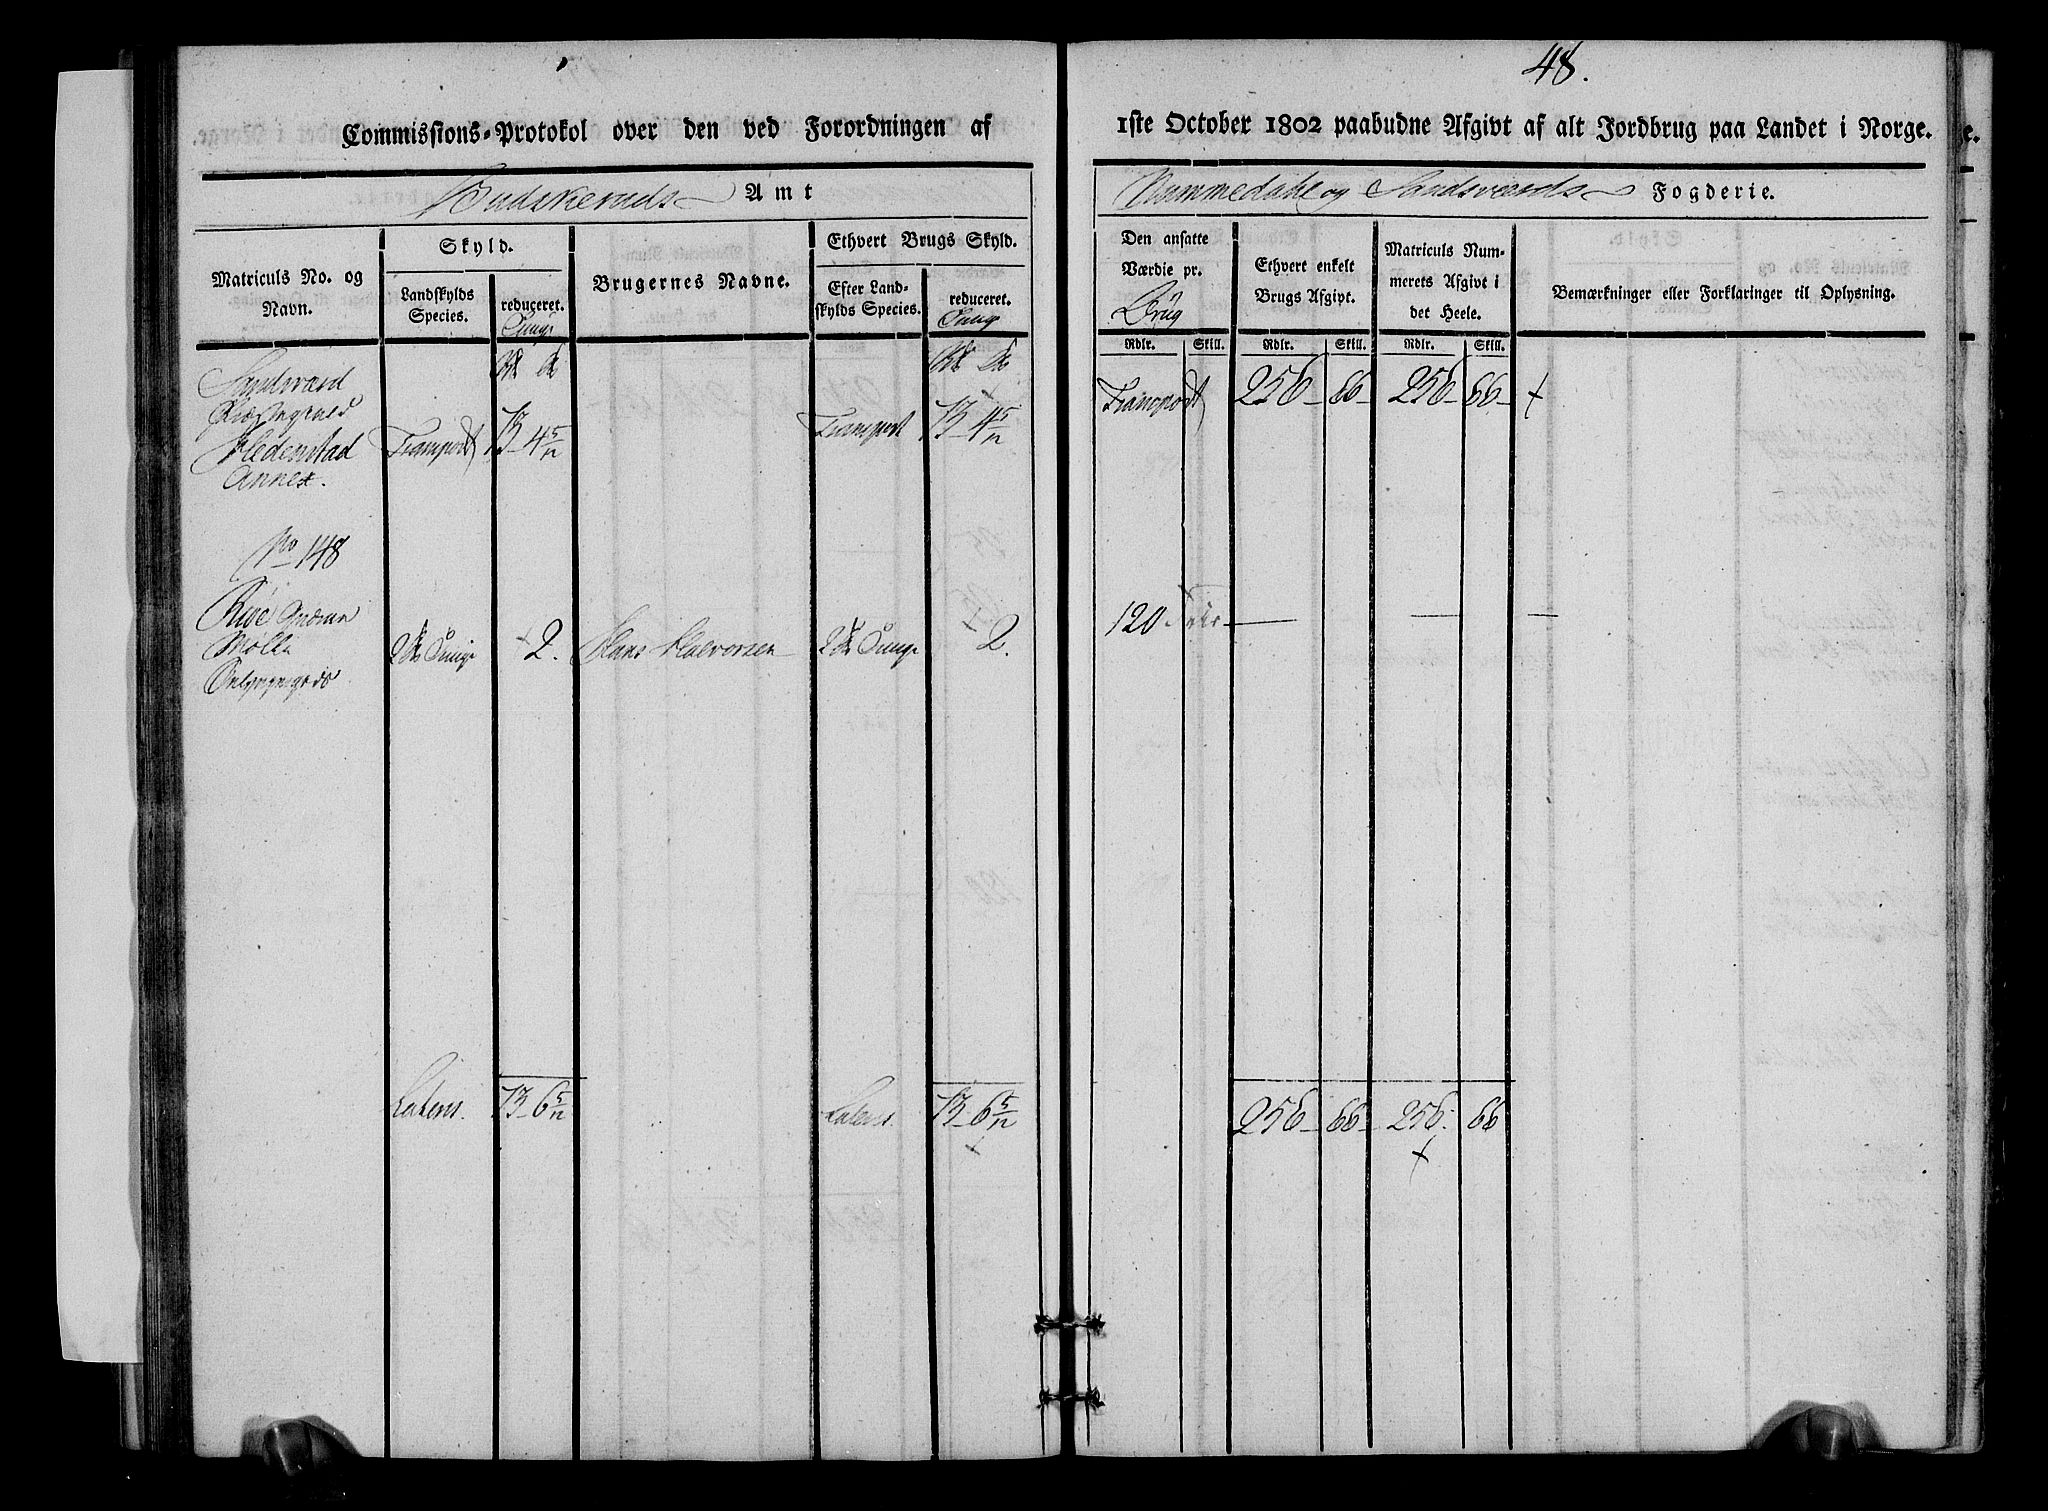 48.
Commissions-Protokol over den ved Forordningen af
1ste October 1802 paabudne Afgivt af alt Jordbrug paa Landet i Norge.
Budskeruds Amt
Nummedahl og Sandsværds Fogderie.
Matriculs No. og Navn.
Skyld.
Landskylds Species.
reduceret.
Tunge
Brugernes Navne.
Ethvert Brugs Skyld.
Efter Landskylds Species.
reduceret.
Tung
Den ansatte Værdie pr.
Brug
Rdlr. Skill.
Ethvert enkelt Brugs Afgivt.
Rdlr. Skill.
Matriculs Nummerets Afgivt i det Heele.
Rdlr. Skill.
Bemærkninger eller Forklaringer til Oplysning.
Sandsværd
Hedenstad Transport 13 - 4 5/12 Transport 13 - 4 5/12 Transport 256 - 66 - 256 - 66 - +
Annex.
No 148
Mølle 2 Tunge 2. Hans Halvorsen 2 Tunge 2. 120
Latens. 13 - 6 5/12 Latens. 13 - 6 5/12 256 - 66 - 256. 66
+ +